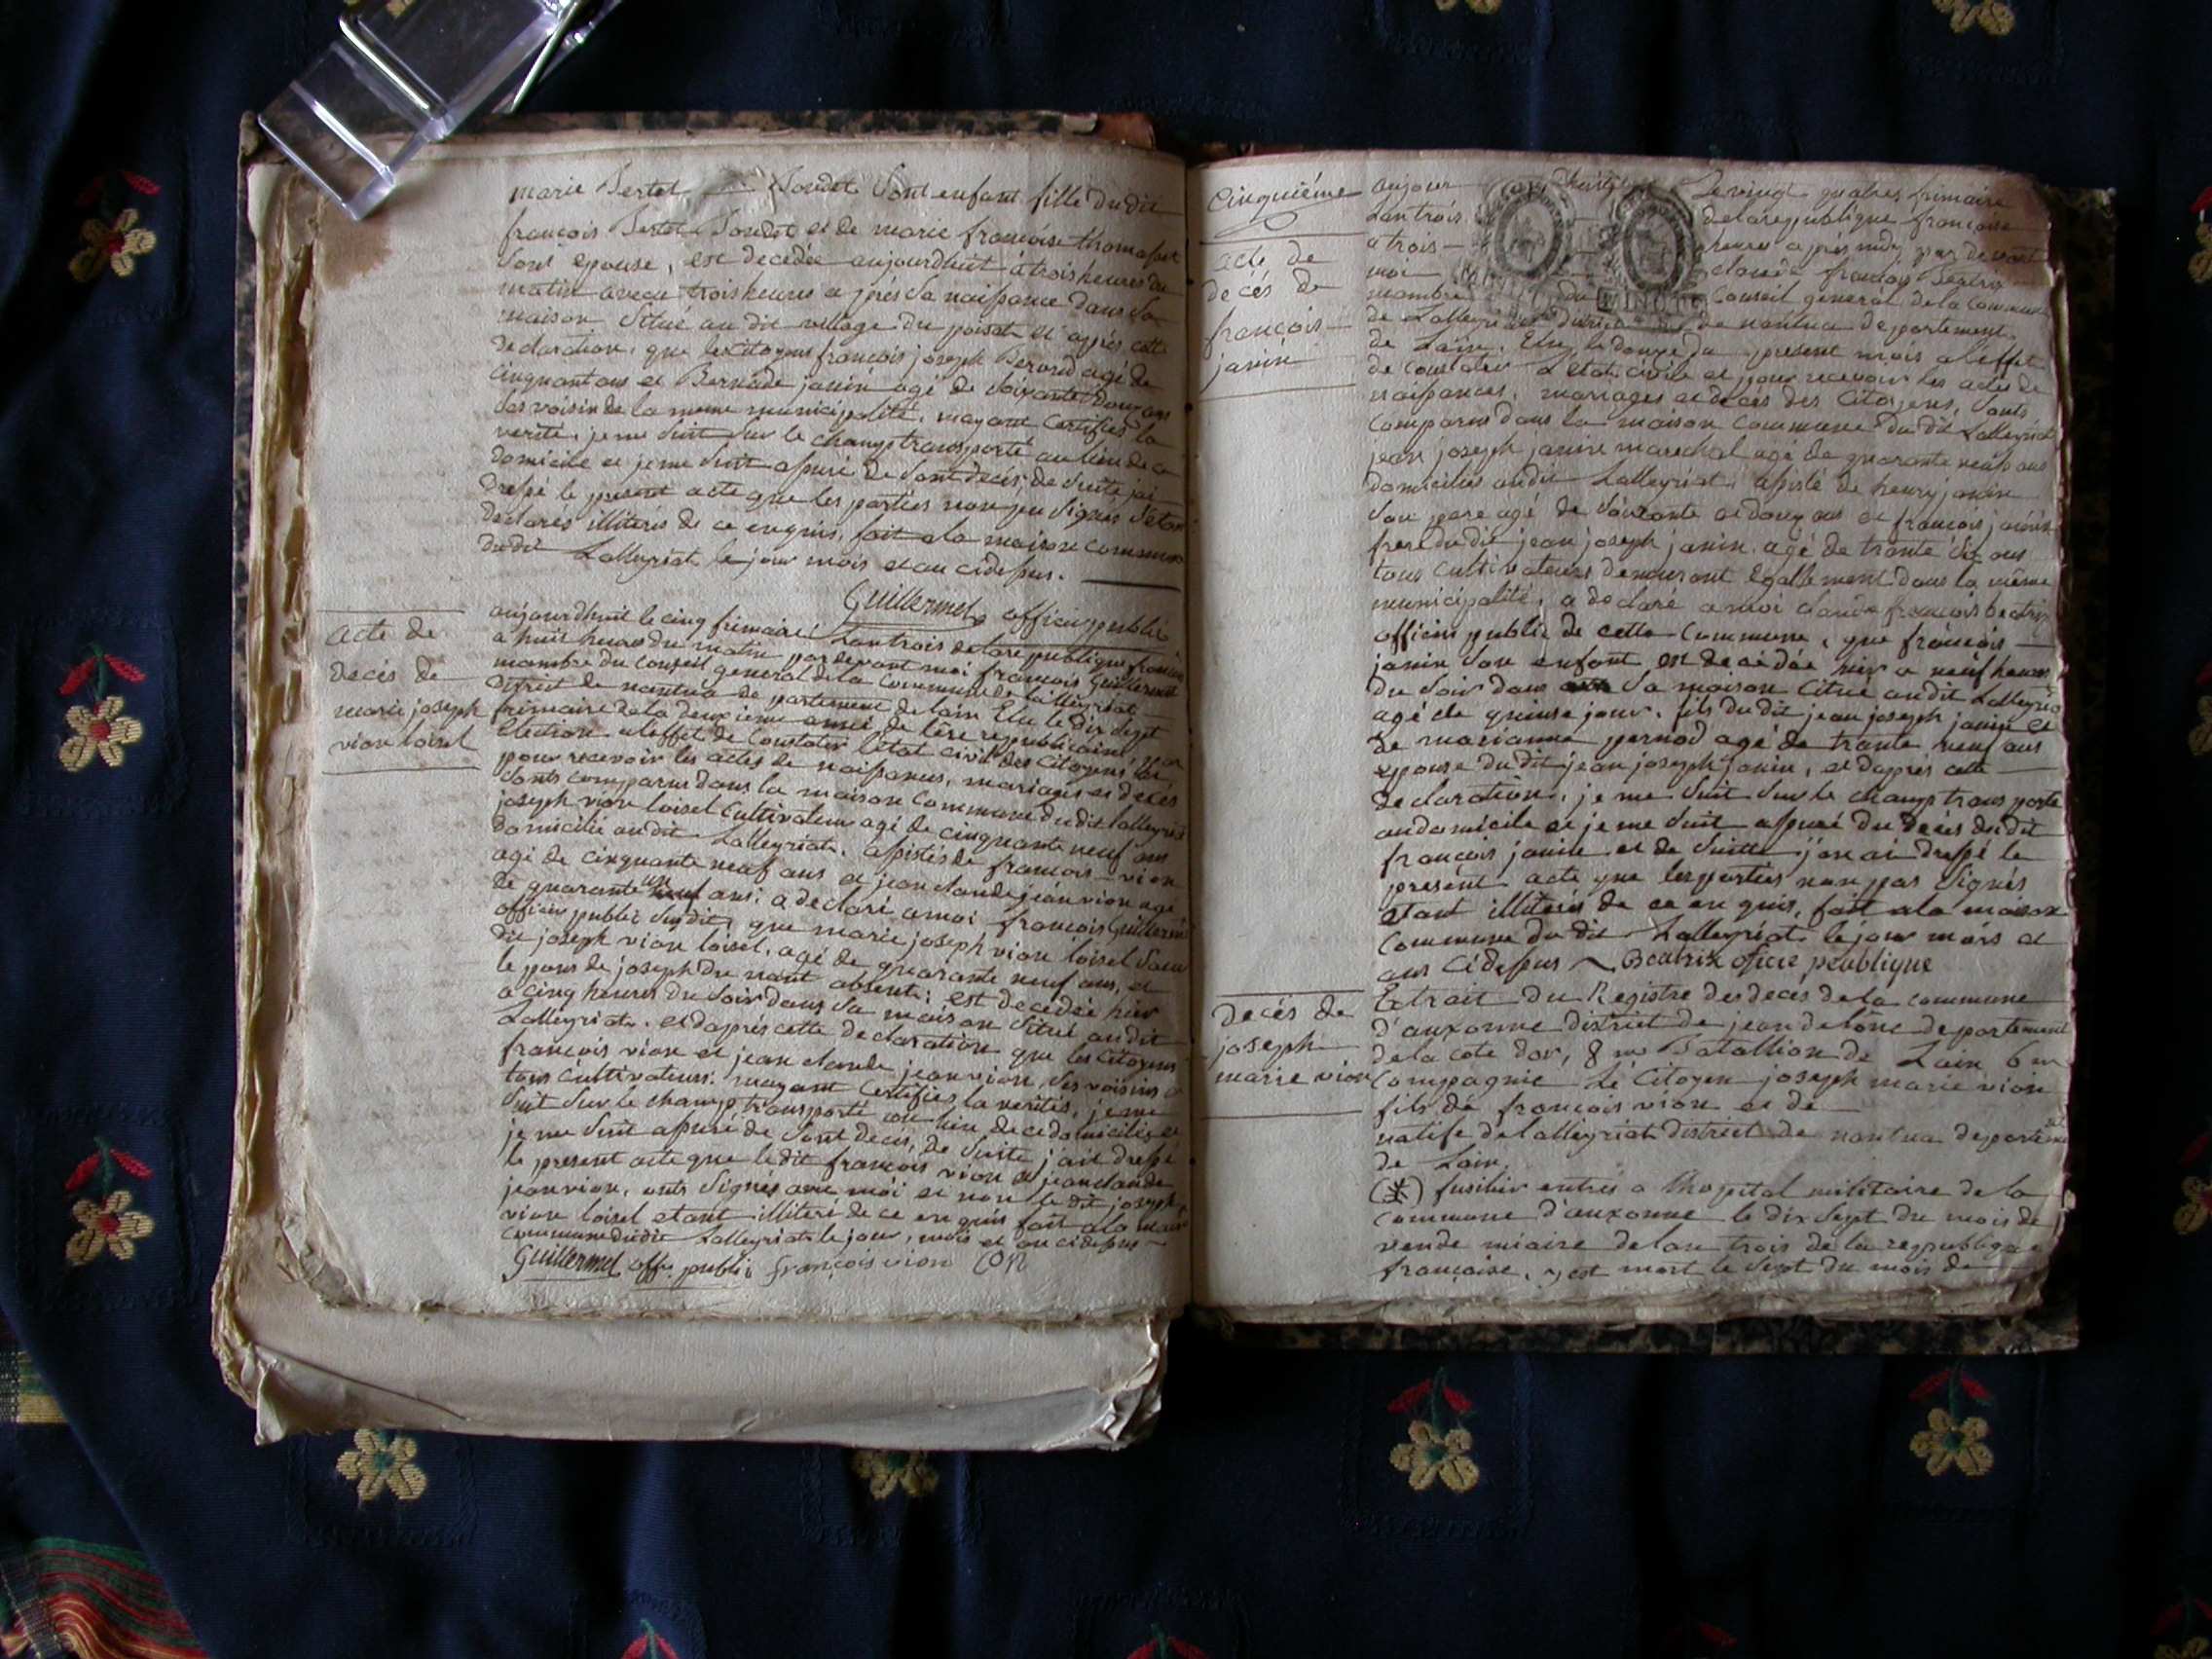 marie Pertet Soudet Sont enfant fille du dit
francois Pertet Soudet et de marie francoise thomasset
Sont epouse, est decedée aujourdhuit a trois heures du
matin avecu trois heures a prés sa naissance dans sa
maison Situé au dit village du poisat et aprés cette
declaration, que les citoyens francois joseph Beroud agé de
cinquant ans et Bernade janin agé de soixante douze ans
ses voisin de la meme municipalité, mayant certifiés la
verité, je me suit sur le champ transporté au lieu de ce
domicile et je me suit assuré de Sont decés, de suite jai
dressé le present acte que les parties non peu Signés s'etant
declarés illiterés de ce enquis, fait a la maison commune
du dit Lalleyriat le jour mois et an cidessus.
Guillermet officier public
acte de
decés de
marie joseph
vion loisel
aujourdhuit le cinq frimaire Lan trois de la republique francaise
a huit heures du matin par devant moi francois Guillermet
mambre du conseil general de la commune de Lalleyriat
district de nantua departement de lain Elu le dix sept
frimaire de la deuxieme année de lere republicaine par
Election a leffet de Constater letat civil des citoyens et
pour recevoir les actes de naissances, mariages et decés
sonts comparu dans la maison commune du dit Lalleyriat
joseph vion loisel Cultivateur agé de cinquante neuf ans
domicilié audit Lalleyriat, assistés de francois vion
agé de cinquante neuf ans et jean claude jeanvion agé
de quarante un ans; a declaré a moi francois Guillermet
officier public susdit, que marie joseph vion loisel soeur
du joseph vion loisel, agé de quarante neuf ans, et
le pous de joseph du nant absent; est decedée hier
a cinq heures du soir dans sa maison situé audit
Lalleyriat. et daprés cette declaration que les citoyens
francois vion et jean claude jeanvion, ses voisins
tous cultivateurs, mayant certifiés la verités, je me
suit sur le champ transporté au lieu de ce domicile et
je me suit assuré de sont decés, de suite j'ait dressé
le present acte que le dit francois vion et jean claude
jeanvion, onts Signés avec moi et non le dit joseph
vion loisel etant illiteré de ce enquis fait a la maison
commune du dit Lalleyriat le jour, mois et an cidessus
Guillermet offr. public françois vion
Cinquiéme
acte de
decés de
francois
janin
aujour Le vingt quatres frimaire
Lan trois de la republique francaise
a trois heures aprés midy par devant
moi claude francois Beatrix
mambre du Conseil general de la commune
de Lalleyriat district de nantua departement
de Lain. Elu le douze du present mois a leffet
de constater Letat civile et pour recevoir les actes de
naissances, marriages et decés des Citoyens, sonts
comparus dans la maison commune du dit Lalleyriat
jean joseph janin marechal agé de quarante neuf ans
domiciliés audit Lalleyriat, assisté de henry janin
son pere agé de soixante et douze ans et francois janin
frere du dit jean joseph janin agé de trante six ans
tous cultivateurs demeurant Egallement dans la même
municipalité, a declaré a moi claude francois beatrix
officier public de cette commune, que francois
janin son enfant est decédée hier a neuf heures
du soir dans sa maison Citué audit Lalleyriat
agé de quinse jour, fils du dit jean joseph janin et
de marianne pernod agé de trante neuf ans
epouse du dit jean joseph janin, et daprés cette
declaration, je me suit sur le champ transporté
au domicile et je me suit assuré du decés du dit
francois janin et de suitte j'en ai dressé le
présent acte que les parties non pas Signés
etant illiterés de ce enquis, fait a la maison
commune du dit Lalleyriat le jour mois et
ans cidessus Beatrix oficie peublique
Decés de
joseph
marie vion
Extrait du Registre des decés de la commune
d'auxonne district de jean de lône departement
de la cote dor, 8me Batallion de Lain 6me
compagnie Le Citoyen joseph marie vion
fils de francois vion et de
natife de lalleyriat district de nantua departement
de Lain.
(*) fusilier entrés a lhopital militaire de la
commune d'auxonne le dix sept du mois de
vende miaire de lan trois de la republique
françaice, y est mort le sept du mois de